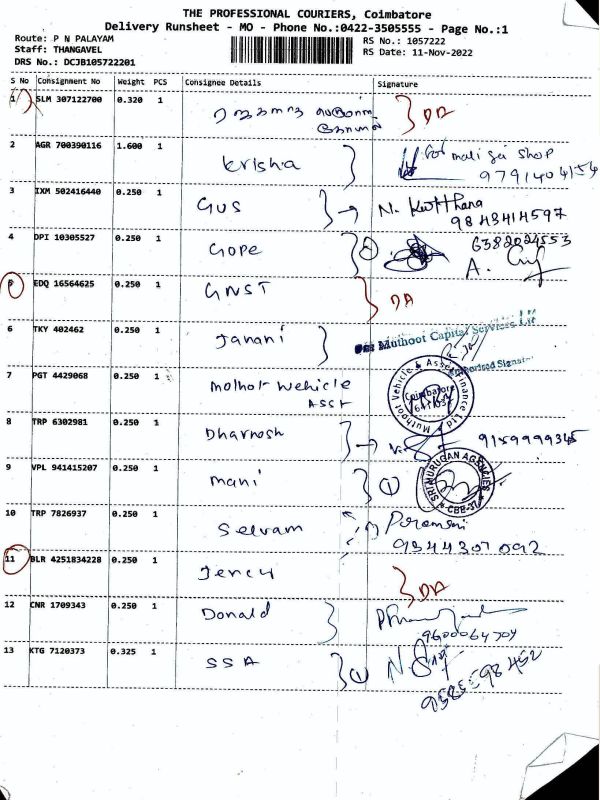 THE PROFESSIONAL COURIERS, Coimbatore
Delivery Runsheet - MO - Phone No.:0422-3505555 - Page No.:1
Route: P N PALAYAM
Staff: THANGAVEL
DRS No.: DCJB105722201
RS No.: 1057222
RS Date: 11-Nov-2022
S No Consignment No Weight PCS Consignee Details Signature
1 SLM 307122700 0.320 1 DA
2 AGR 700390116 1.600 1 Krisha for maligai shop
9791404154
3 IXM 502416440 0.250 1 GUS N. Keerthana
9843414597
4 DPI 10305527 0.250 1 Gope 6382024553
A.
5 EDQ 16564625 0.250 1 GNST DA
6 TKY 402462 0.250 1 Janani For Muthoot Capital Services Ltd
Authorised Signatory
7 PGT 4429068 0.250 1 Mothot Vehicle
Asst
Muthoot Vehicle & Asset Finance Ltd
Coimbatore
8 TRP 6302981 0.250 1 Dharnesh 9159999345
9 VPL 941415207 0.250 1 mani 1 SRI MURUGAN AGENCIES
CBE-37
10 TRP 7826937 0.250 1 Selvam
9344307092
11 BLR 4251834228 0.250 1 Jency DA
12 CNR 1709343 0.250 1 Donald
9600064704
13 KTG 7120373 0.325 1 SSA 1